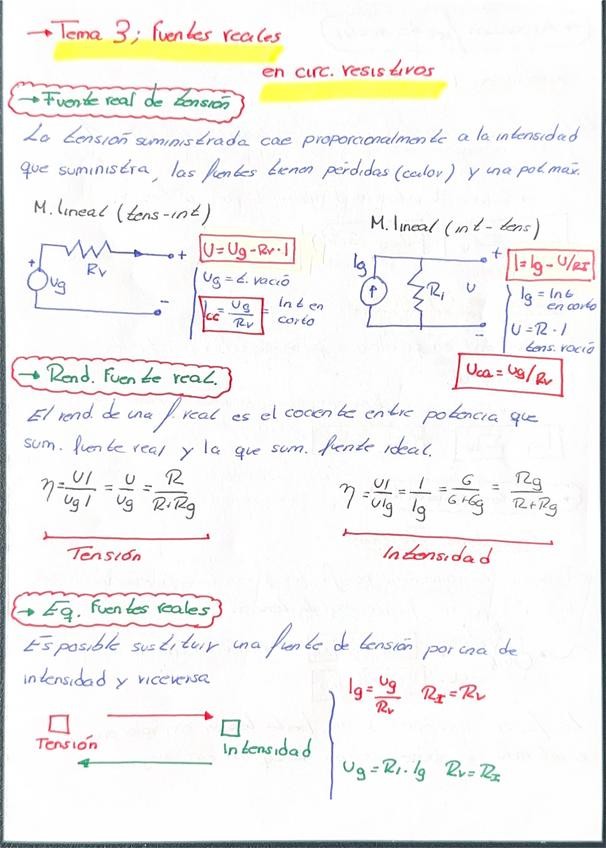 → Tema 3; fuentes reales
en circ. resistivos
→ Fuente real de tensión
La tensión suministrada cae proporcionalmente a la intensidad
que suministra, las fuentes tienen pérdidas (calor) y una pot. max.
M. lineal (tens-int)
M. lineal (int-tens)
U = Ug - Rv · I
Ug = t. vació
Icc = Ug / Rv = Int en corto
+
Rv
+
Ug
-
I = Ig - U/RI
Ig = Int en corto
U = R · I
tens. vació
Uca = Ug/Rv
Ig
Ri
U
+
-
→ Rend. Fuente real.
El rend. de una f. real es el cociente entre potencia que
sum. fuente real y la que sum. fuente ideal.
η = UI / Ug I = U / Ug = R / R+Rg
η = UI / UIg = I / Ig = G / G+Gg = Rg / R+Rg
Tensión
Intensidad
→ Eq. Fuentes reales
Es posible sustituir una fuente de tensión por una de
intensidad y viceversa
Ig = Ug / Rv RI = Rv
Tensión
Intensidad
Ug = RI · Ig Rv = RI